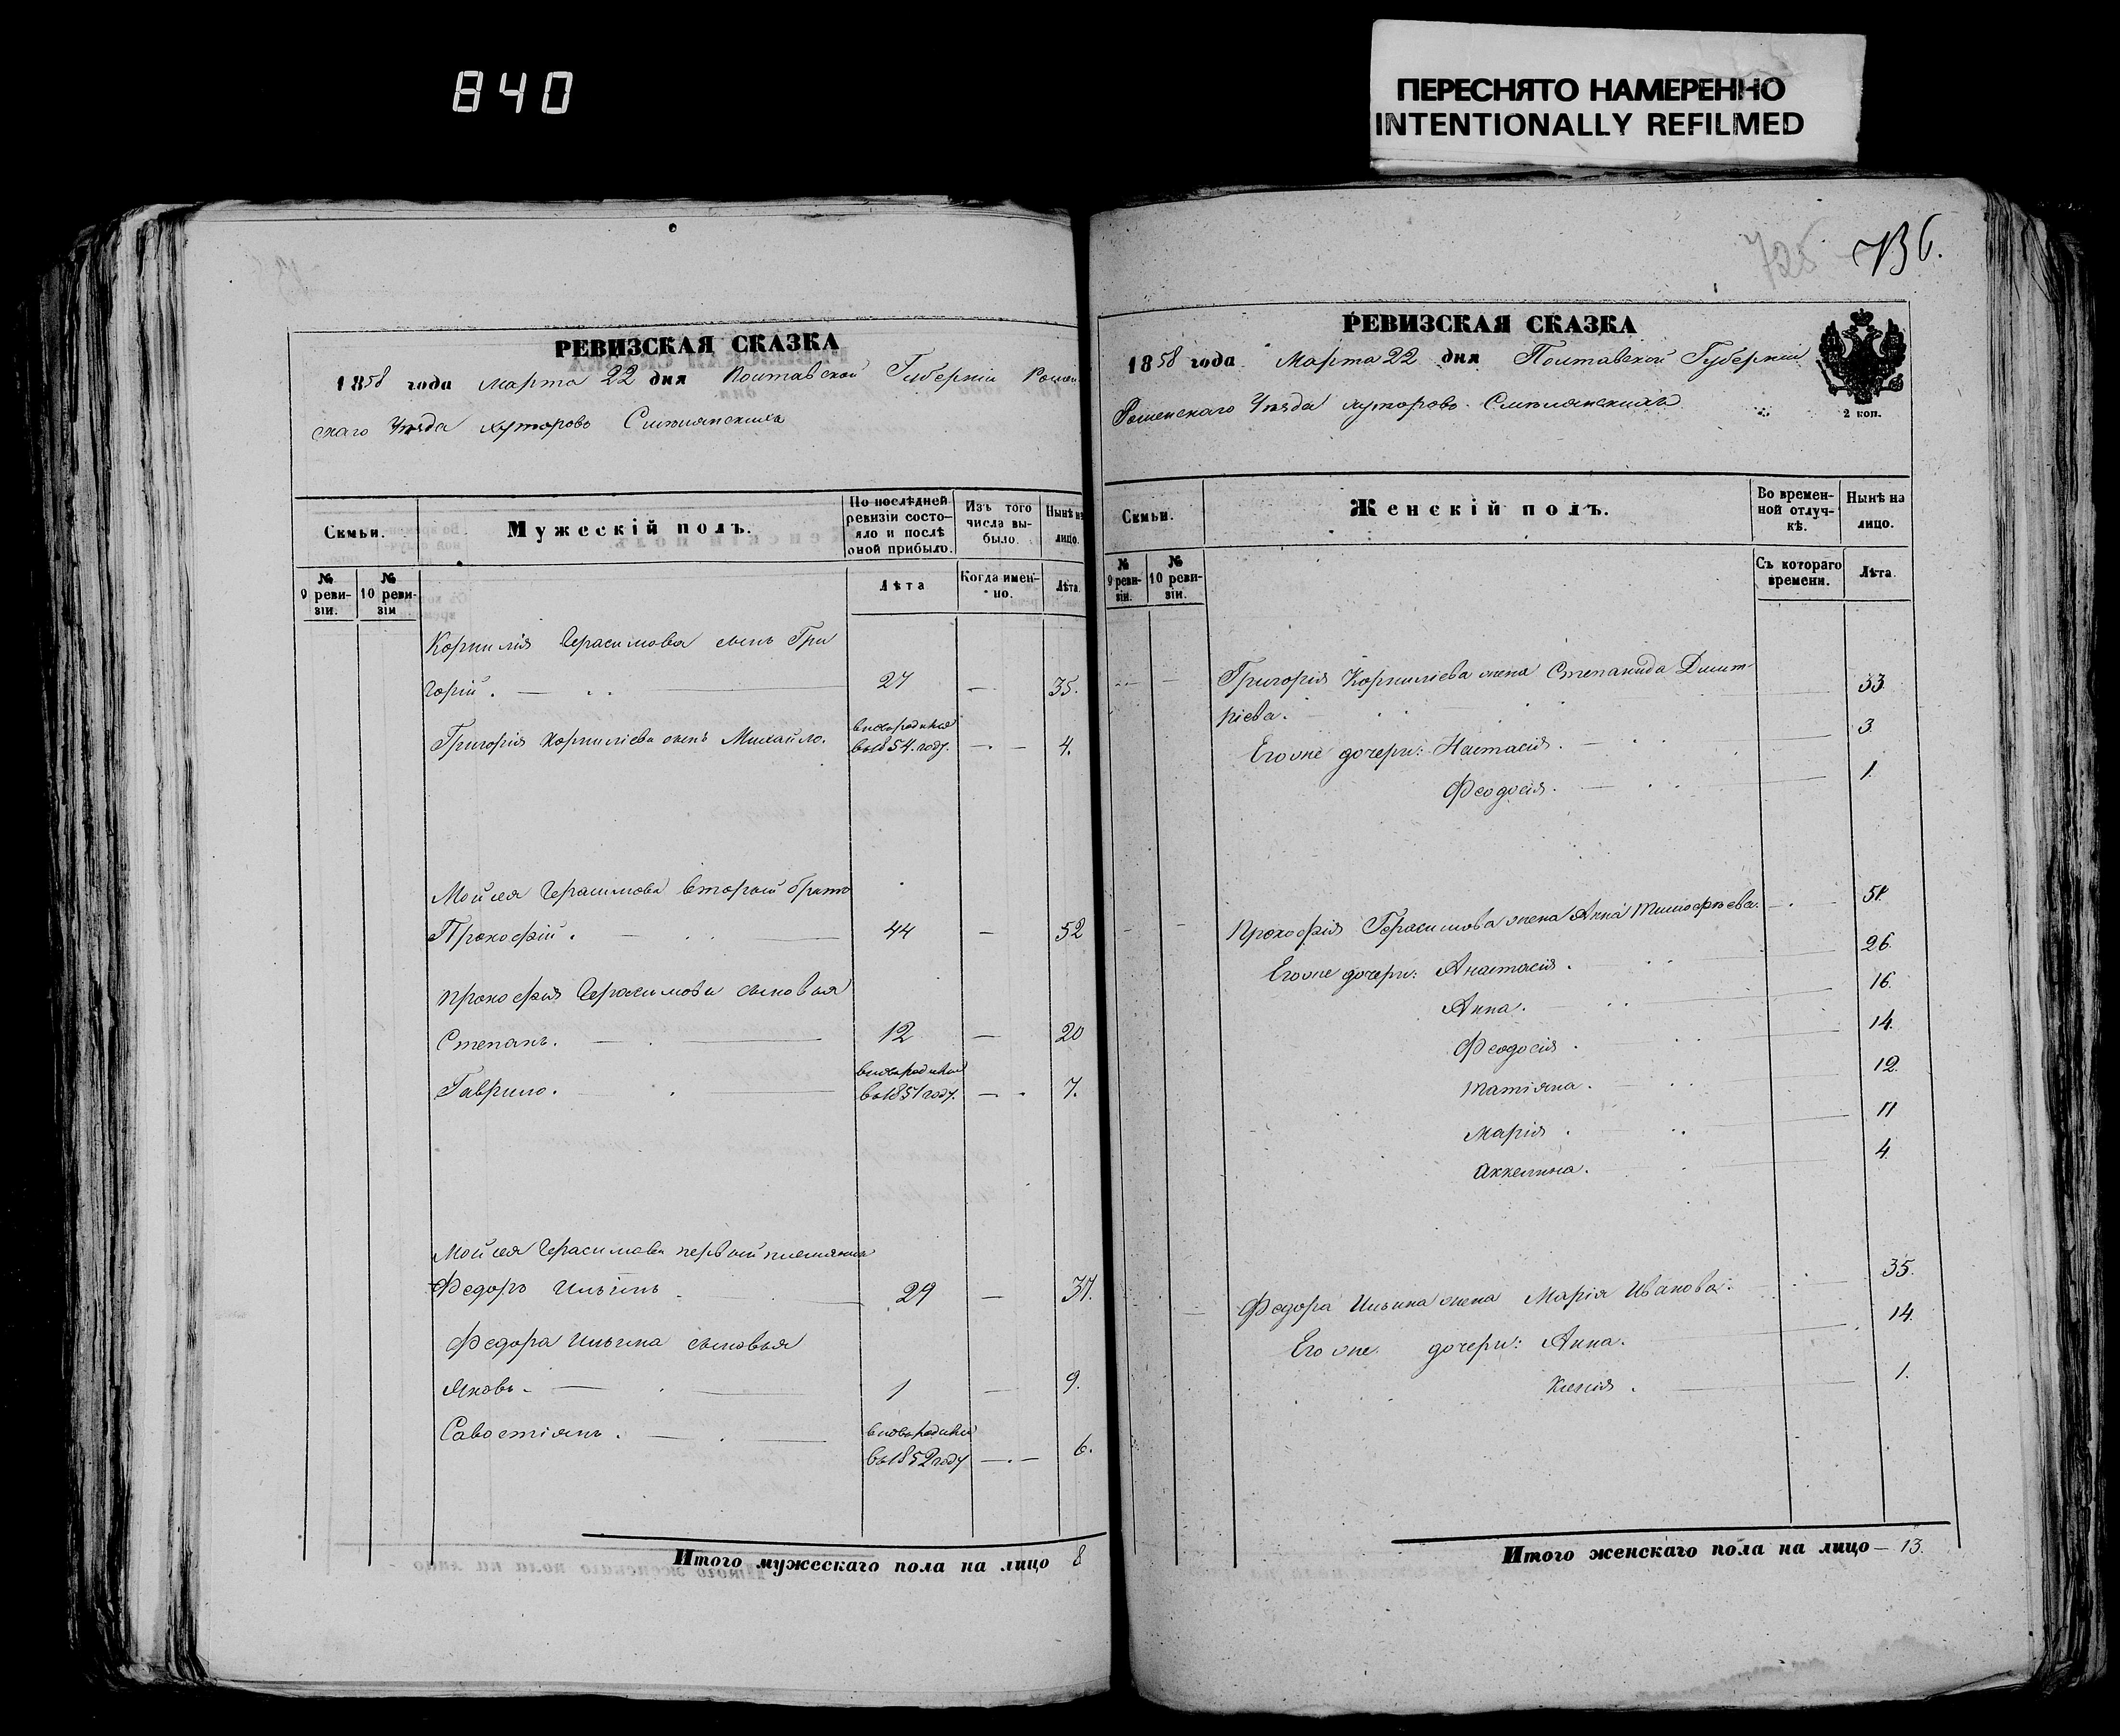 840
ПЕРЕСНЯТО НАМЕРЕННО
INTENTIONALLY REFILMED
РЕВИЗСКАЯ СКАЗКА
1858 года Марта 22 дня Полтавской Губернiи Ромен
скаго Уѣзда хуторовъ Смѣлянскихъ
Семьи.
Мужескiй полъ.
По послѣдней
ревизiи состо-
яло и послѣ
оной прибыло.
Изъ того
числа вы-
было.
Нынѣ на
лицо.
№
9 реви-
зiи.
№
10 реви-
зiи
Лѣта
Когда имен-
но.
Лѣта.
Корнилiя Герасимова сынъ Гри
горiй. 27 — 35.
Григорiя Корнилiева сынъ Михайло. вновьрожденый
въ 1854. году. — 4.
Мойсея Герасимова вторый братъ
Прокофiй. 44 — 52
Прокофiя Герасимова сыновья
Степанъ. 12 — 20
Гаврило. вновьрожденый
въ 1851 году. — 7.
Мойсея Герасимова первый племянникъ
Федоръ Ильинъ 29 — 37.
Федора Ильина сыновья
Яковъ. 1 — 9.
Савостiянъ. вновьрожденый
въ 1852 году — 6.
Итого мужескаго пола на лицо 8
725 736.
РЕВИЗСКАЯ СКАЗКА
1858 года Марта 22 дня Полтавской Губернiи
Роменскаго Уѣзда хуторовъ Смѣлянскихъ
2 коп.
Семьи.
Женскiй полъ.
Во времен-
ной отлуч-
кѣ.
Нынѣ на
лицо.
№
9 реви-
зiи.
№
10 реви-
зiи.
Съ котораго
времени.
Лѣта.
Григорiя Корнилiева жена Степанида Дмит-
рiева. 33.
Егоже дочери: Настасiя. 3.
Феодосiя. 1.
Прокофiя Герасимова жена Анна Тимофѣева. 51.
Егоже дочери: Анастасiя. 26.
Анна. 16.
Феодосiя. 14.
Татiяна. 12.
Марiя. 11
Аккелина. 4.
Федора Ильина жена Марiя Иванова. 35.
Егоже дочери: Анна. 14.
Ксенiя. 1.
Итого женскаго пола на лицо — 13.